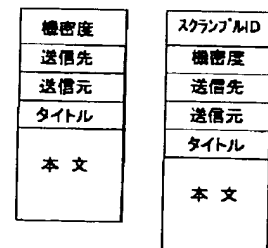 機密度
送信先
送信元
タイトル
本 文
スクランブルID
機密度
送信先
送信元
タイトル
本 文